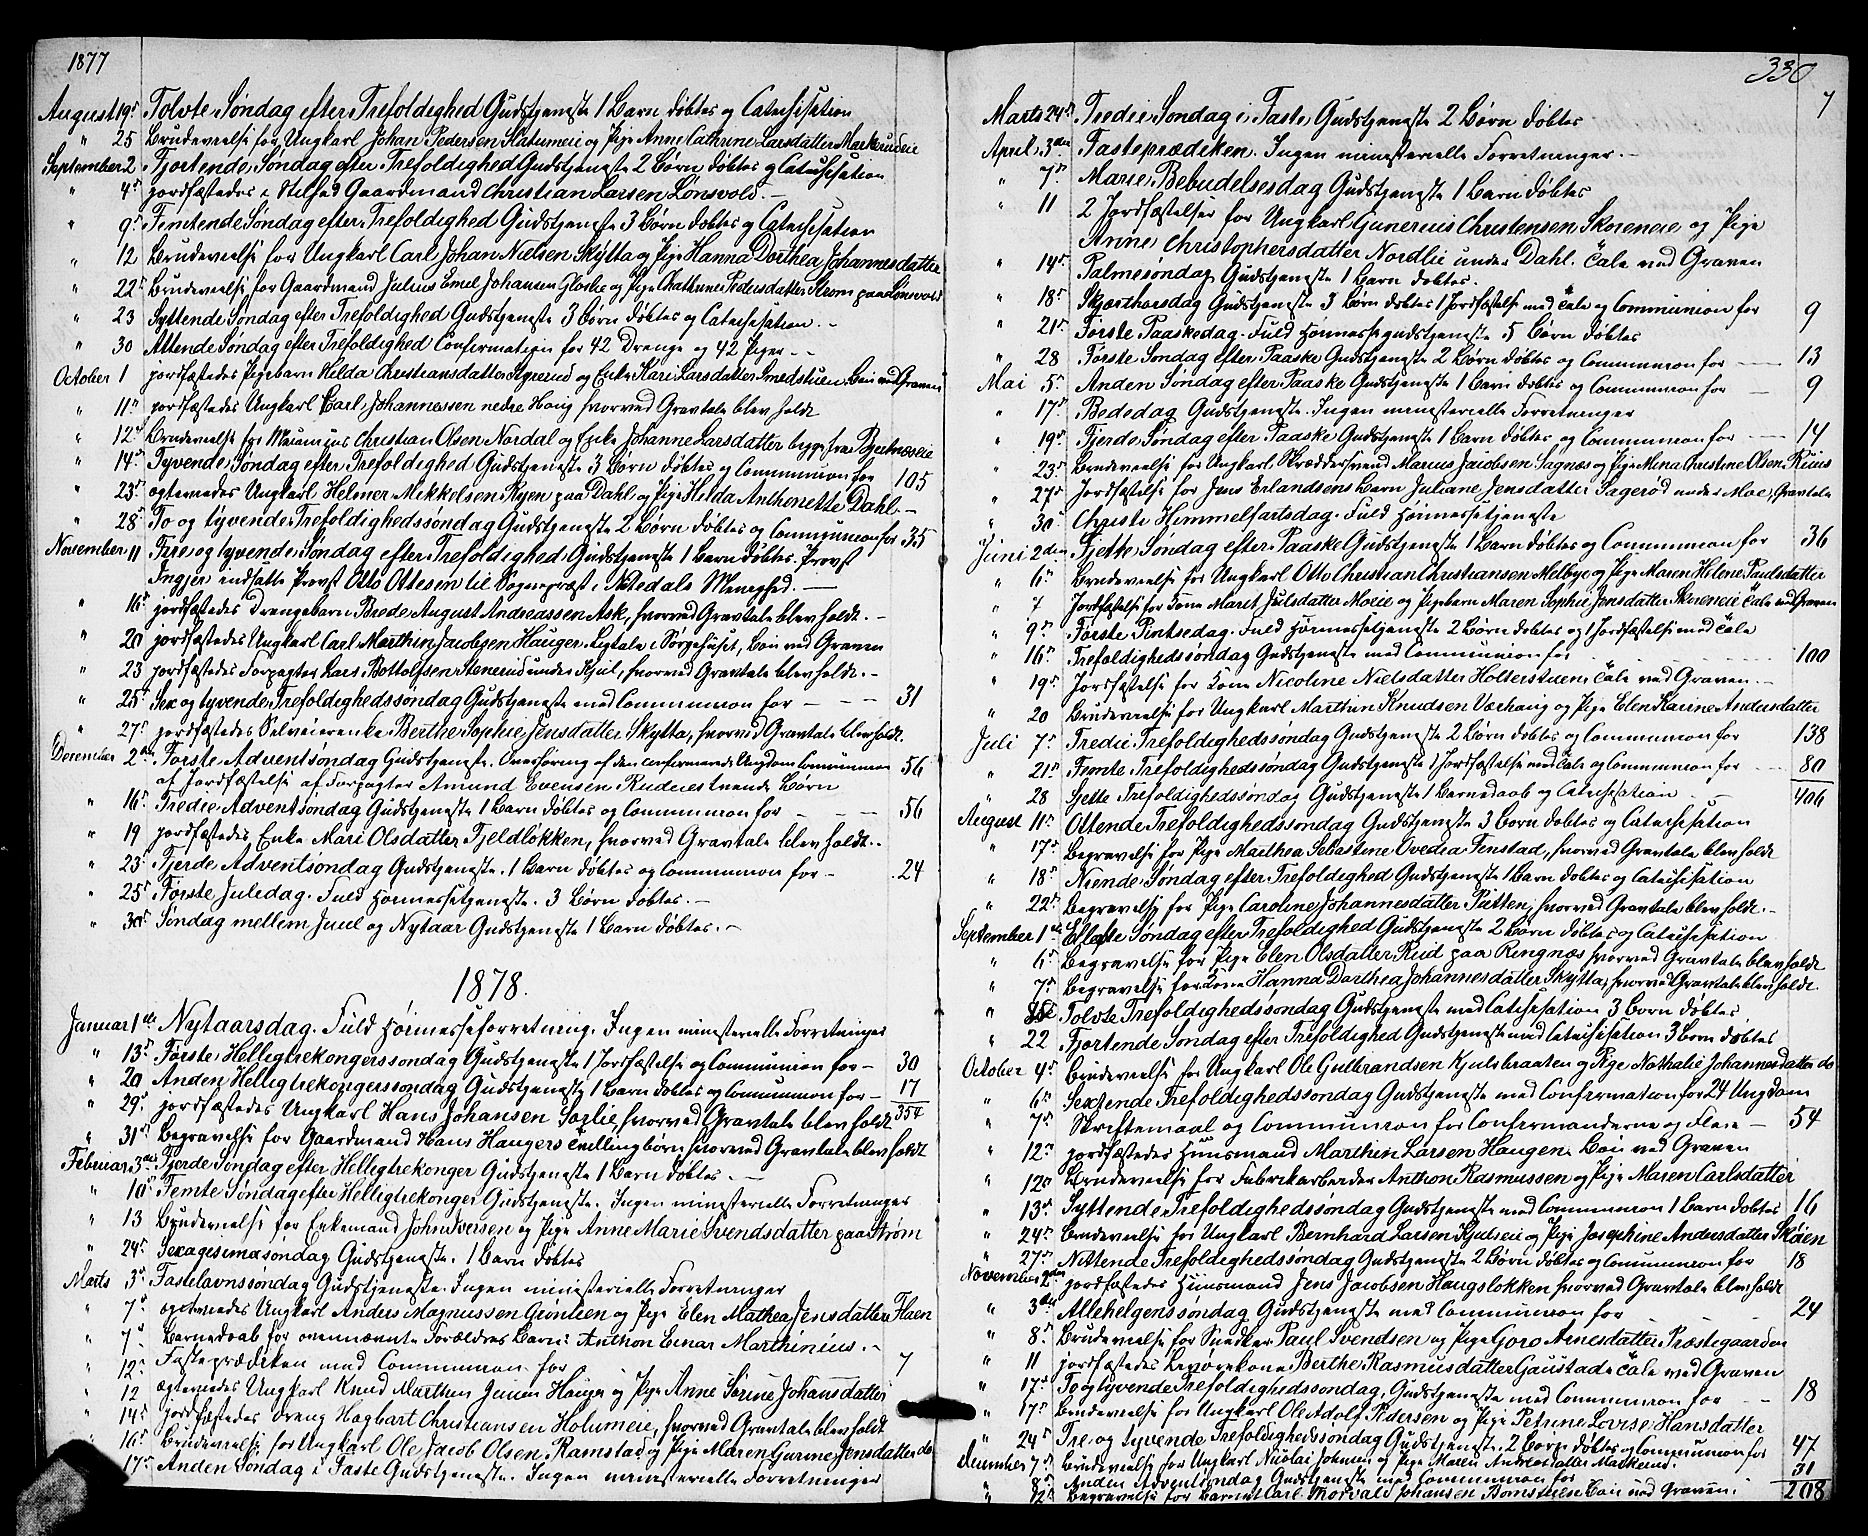 1877
August 19de Tolvte Søndag efter Trefoldighed Gudstjeneste 1 Barn døbtes og Catechisation
" 25 Brudevielse for Ungkarl Johan Pedersen og Pige Anne Cathrine Larsdatter Markerudeie
September 2 Fjortende Søndag efter Trefoldighed Gudstjeneste 2 Børn døbtes og Catechisation
" 4de jordfæstedes i Gaardmand Christian Larsen Lønsvold.
" 9de Femtende Søndag efter Trefoldighed Gudstjeneste 3 Børn døbtes og Catechisation
" 12 Brudevielse for Ungkarl Carl Johan Nielsen Skytta og Pige Hanna Dorthea Johannesdatter
" 22de Brudevielse for Gaardmand Julius Emil Johansen og Pige Cathrine Pedersdatter Strøm paa Lønsvold
" 23 Syttende Søndag efter Trefoldighed Gudstjeneste 3 Børn døbtes og Catechisation. -
" 30 Attende Søndag efter Trefoldighed Confirmation for 42 Drenge og 42 Piger - -
October 1 jordfæstedes Pigebarn Hilda Christiansdatter og Enke Kari Larsdatter Smedstuen, Bøn ved Graven
" 11te jordfæstedes Ungkarl Carl Johannessen nedre Haug hvorved Gravtale blev holdt
" 12te Brudevielse for Christian Olsen Nordal og Enke Johanne Larsdatter begge fra
" 14de Tyvende Søndag efter Trefoldighed Gudstjeneste 3 Børn døbtes og Communion for 105
" 23de ægteviedes Ungkarl Helmer Mikkelsen Ryen paa Dahl og Pige Hilda Anthonette Dahl. -
" 28de To og tyvende Trefoldighedssøndag Gudstjeneste 2 Børn døbtes og Communion for 35
November 11 Fire og tyvende Søndag efter Trefoldighed Gudstjeneste 1 Barn døbtes. Provst
Ingier indsatte Provst Otto Ottesen til Sognepræst i Nitedals Menighed. -
" 16de jordfæstedes Drengebarn Brede August Andreassen Ask, hvorved Gravtale blev holdt. -
" 20 jordfæstedes Ungkarl Carl Marthin Jacobsen Hauger. Ligtale i Sørgehuset, Bøn ved Graven
" 23 jordfæstedes Forpagter Lars Bottolfsen Stenerud under Kjul, hvorved Gravtale blev holdt. -
" 25de Sex og tyvende Trefoldighedssøndag Gudstjeneste med Communion for - - - 31
" 27de jordfæstedes Selveierenke Berthe Sophie Jensdatter Skytta, hvorved Gravtale blev holdt.
December 2den Første Adventsøndag Gudstjeneste. Overhøring af den confirmerede Ungdom Communion 56
af Jordfæstelse af Forpagter Amund Evensen Børn
" 16de Tredie Adventsøndag Gudstjeneste 1 Barn døbtes og Communion for - - - 56
" 19 jordfæstedes Enke Mari Olsdatter Fjeldløkken, hvorved Gravtale blev holdt. -
" 23de Fjerde Adventsøndag Gudstjeneste. 1 Barn døbtes og Communion for - - 24
" 25de Første Juledag. Fuld Høimessetjeneste. 3 Børn døbtes. -
" 30te Søndag mellem Juul og Nytaar Gudstjeneste 1 Barn døbtes. -
1878.
Januar 1ste Nytaarsdag. Fuld Høimesseforretning. Ingen ministerielle Forretninger
" 13de Første Helligtrekongerssøndag Gudstjeneste 1 Jordfæstelse og Communion for - 30
" 20 Anden Helligtrekongerssøndag Gudstjeneste 1 Barn døbtes og Communion for - 17
354
" 29de jordfæstedes Ungkarl Hans Johansen Sørlie, hvorved Gravtale blev holdt
" 31te Begravelse for Gaardmand Hans Haugers Tvillingbørn hvorved Gravtale blev holdt
Februar 3die Fjerde Søndag efter Helligtrekonger Gudstjeneste 1 Barn døbtes. -
" 10de Femte Søndag efter Helligtrekonger Gudstjeneste. Ingen ministerielle Forretninger
" 13 Brudevielse for Enkemand John Iversen og Pige Anne Marie Svendsdatter paa Strøm
" 24de Sexagesimasøndag Gudstjeneste. 1 Barn døbtes
Marts 3die Fastelavnssøndag Gudstjeneste. Ingen ministerielle Forretninger
" 7de ægteviedes Ungkarl Anders Magnussen og Pige Elen Mathea Jensdatter
" 7de Barnedaab for ovennævnte Forældres Barn: Anthon Einar Marthinius. -
" 12te Fasteprædiken med Communion for 7
" 12 ægteviedes Ungkarl Knud Marthin Hauger og Pige Anne Sørine Johansdatter
" 14de jordfæstedes Dreng Hagbart Christiansen Holumeie, hvorved Gravtale blev holdt
" 16de Brudevielse for Ungkarl Ole Jacob Olsen Ramstad og Pige Maren Gurine Jensdatter do
17de Anden Søndag i Faste Gudstjeneste. Ingen ministerielle Forretninger
330
Marts 24de Tredie Søndag i Faste Gudstjeneste 2 Børn døbtes 7
April 3die Fasteprædiken. Ingen ministerielle Forretninger. -
" 7de Marie Bebudelsesdag Gudstjeneste 1 Barn døbtes
" 11 2 Jordfæstelser for Ungkarl Gunerius Christensen og Pige
Anne Christophersdatter Nordlie under Dahl. Tale ved Graven
" 14de Palmesøndag Gudstjeneste 1 Barn døbtes.
" 18de Skjærthorsdag Gudstjeneste 3 Børn døbtes 1 Jordfæstelse med Tale og Communion for 9
" 21de Første Paaskedag. Fuld Høimessegudstjeneste 5 Børn døbtes
" 28 Første Søndag efter Paaske Gudstjeneste 2 Børn døbtes og Communion for - 13
Mai 5te Anden Søndag efter Paaske Gudstjeneste 1 Barn døbtes og Communion for - 9
" 17de Bededag Gudstjeneste. Ingen ministerielle Forretninger
" 19de Fjerde Søndag efter Paaske Gudstjeneste 1 Barn døbtes og Communion for - 14
" 23de Brudevielse for Ungkarl Skræddersvend Marius Jacobsen Sagnæs og Pige Mina Christine Olsen
" 27de Jordfæstelse for Jens Erlandsens Barn Juliane Jensdatter under Moe, Gravtale
" 30te Christi Himmelfartsdag. Fuld Høimessetjeneste
Juni 2den Sjette Søndag efter Paaske Gudstjeneste 1 Barn døbtes og Communion for 36
" 6te Brudevielse for Ungkarl Otto Christian Christiansen Melbye og Pige Maren Helene Paulsdatter
" 7 Jordfæstelse for Kone Marit Julsdatter Moeie og Pigebarn Maren Sophie Jensdatter Tale ved Graven
" 9de Første Pintsedag. Fuld Høimessetjeneste 2 Børn døbtes og 1 Jordfæstelse med Tale
" 16de Trefoldighedssøndag Gudstjeneste med Communion for - - - 100
" 19de Jordfæstelse for Kone Nicoline Nielsdatter Holterstuen, Tale ved Graven. -
" 20 Brudevielse for Ungkarl Marthin Knudsen Værhaug og Pige Elen Karine Andersdatter
Juli 7de Tredie Trefoldighedssøndag Gudstjeneste 2 Børn døbtes og Communion for 138
" 21de Femte Trefoldighedssøndag Gudstjeneste 1 Jordfæstelse med Tale og Communion for - 80
" 28 Sjette Trefoldighedssøndag Gudstjeneste 1 Barnedaab og Catechisation - 406
August 11te Ottende Trefoldighedssøndag Gudstjeneste 3 Børn døbtes og Catechisation
" 17de Begravelse for Pige Marthea Sebastine Ovedia Tenstad, hvorved Gravtale blev holdt
" 18de Niende Søndag efter Trefoldighed Gudstjeneste 1 Barn døbtes og Catechisation
" 22de Begravelse for Pige Caroline Johannesdatter Putten, hvorved Gravtale blev holdt. -
September 1ste Ellefte Søndag efter Trefoldighed Gudstjeneste 2 Børn døbtes og Catechisation
" 6te Begravelse for Pige Elen Olsdatter Rud paa Ringnæs hvorved Gravtale blev holdt
" 7de Begravelse for Kone Hanna Dorthea Johannesdatter Skytta, hvorved Gravtale blev holdt.
" Tolvte Trefoldighedssøndag Gudstjeneste med Catechisation 3 Børn døbtes
" 22 Fjortende Søndag efter Trefoldighed Gudstjeneste med Catechisation 3 Børn døbtes
October 4de Brudevielse for Ungkarl Ole Gulbrandsen Kjulsbraaten og Pige Nathalie Johannesdatter do
" 6te Sextende Trefoldighedssøndag Gudstjeneste med Confirmation for 24 Ungdom
" 7de Skriftemaal og Communion for Confirmanderne og Flere - 54
" 12te jordfæstedes Huusmand Marthin Larsen Haugen. Bøn ved Graven
" 12te Brudevielse for Fabrikarbeider Anthon Rasmussen og Pige Maren Carlsdatter
" 13de Syttende Trefoldighedssøndag Gudstjeneste med Communion 1 Barn døbtes 16
" 24de Brudevielse for Ungkarl Bernhard Larsen Kjulseie og Pige Josephine Andersdatter Skøien
" 27de Nittende Trefoldighedssøndag Gudstjeneste 2 Børn døbtes og Communion for 18
November 2den jordfæstedes Huusmand Jens Jacobsen Haugsløkken hvorved Gravtale blev holdt
" 3die Allehelgenssøndag Gudstjeneste med Communion for - 24
" 8de Brudevielse for Snedker Paul Svendsen og Pige Goro Arnesdatter Præstegaarden
" 11 jordfæstedes Berthe Rasmusdatter Gaustad, Tale ved Graven
" 17de To og tyvende Trefoldighedssøndag, Gudstjeneste med Communion for - 18
" 17de Brudevielse for Ungkarl Ole Adolf Pedersen og Pige Petrine Lovise Hansdatter
" 24de Tre og tyvende Trefoldighedssøndag Gudstjeneste. 2 Børn døbtes og Communion for 47
December 7de Brudevielse for Ungkarl Nicolai Johnsen og Pige Maren Andreasdatter Markerud.
" 8de Anden Adventsøndag Gudstjeneste med Communion for 31
" 12te Begravelse for Barnet Carl Thorvald Johansen Bøn ved Graven. 208